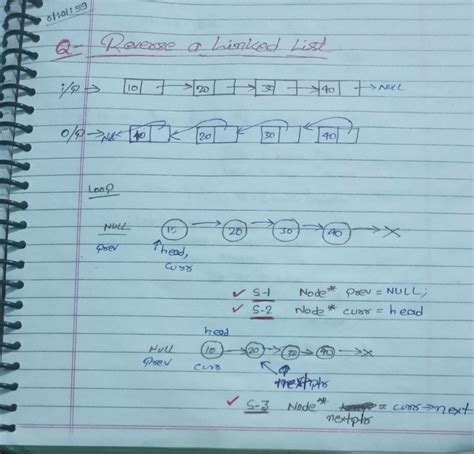 01:01:59
Q- Reverse a Linked List
i/p → 10 → 20 → 30 → 40 → NULL
o/p → NULL 40 20 30 40
Loop
NULL 10 → 20 → 30 → 40 → X
prev ↑head,
curr
✓ S-1 Node* prev = NULL;
✓ S-2 Node* curr = head
head
NULL 10 → 20 → 30 → 40 → X
prev curr nextptr
✓ S-3 Node* = curr→next
nextptr